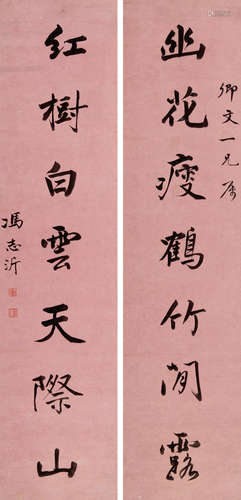 幽花瘦鶴竹間露
卿文一兄屬
紅樹白雲天際山
馮志沂